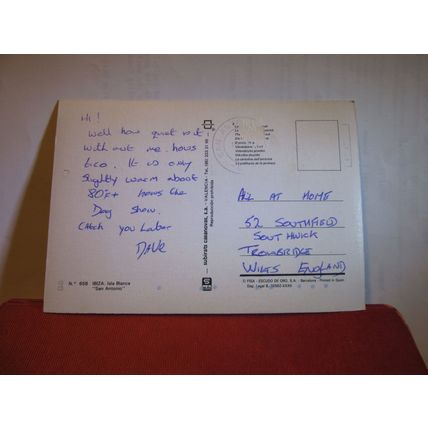 Hi!
Well how quiet is it
without me. hows
Eco. It is only
slightly warm about
80°F+ hows the
Dog show.
Catch you Later
DAVE
N.º 658 IBIZA. Isla Blanca
"San Antonio"
subirats casanovas, s.a. - VALENCIA
Reproducción prohibida
ALL AT HOME
52 SOUTHFIELD
SOUTHWICK
TROWBRIDGE
WILTS ENGLAND
© FISA - ESCUDO DE ORO, S.A. - Barcelona - Printed in Spain
Dep. Legal B.